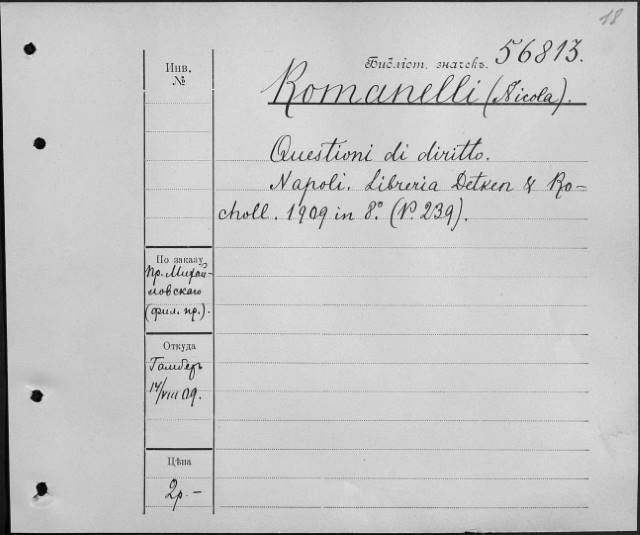 18
Инв.
№
Библіот. значекъ. 56813.
Romanelli (Nicola).
Questioni di diritto.
Napoli. Libreria Detken & Ro-
choll. 1909 in 8.° (P. 239).
По заказу
Пр. Михай-
ловскаго
(фил. пр.).
Откуда
Гамберъ
14/VIII 09.
Цѣна
2р. -